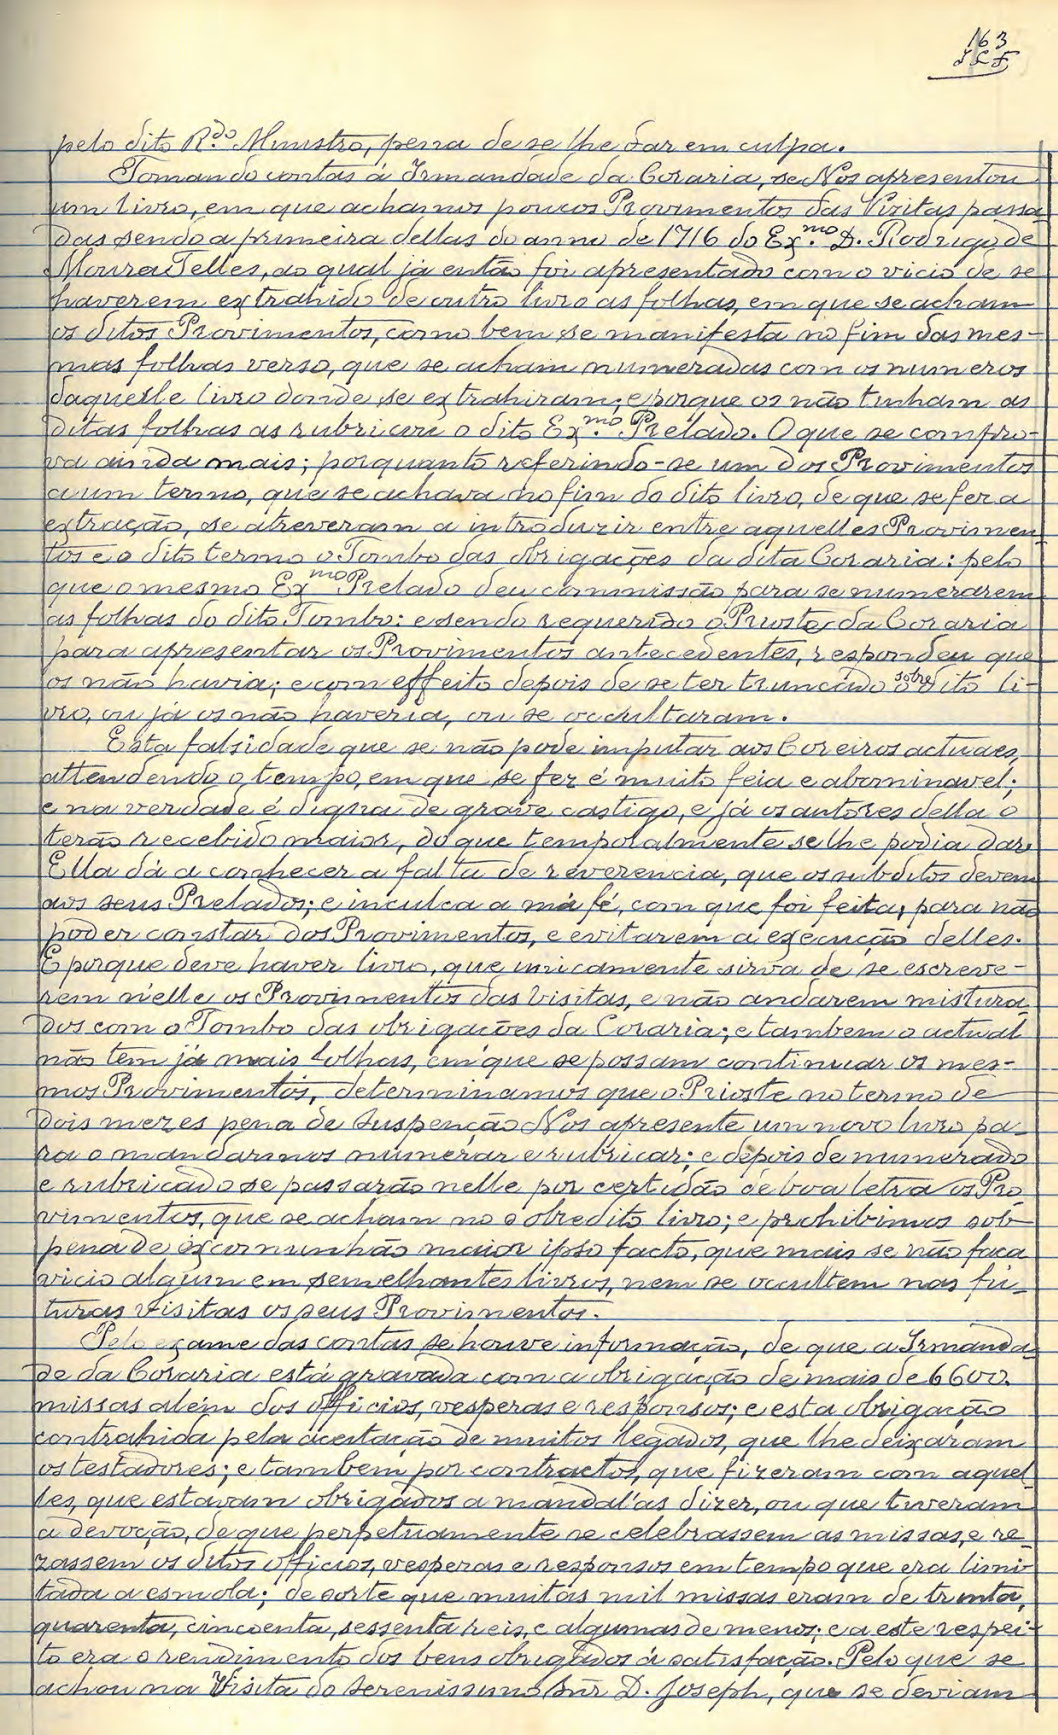 163
pelo dito R.do Ministro, pena de se lhe dar em culpa.
Tomando contas á Irmandade da Coraria, se Nos apresentou
um livro, em que achamos poucos Provimentos das Visitas passa-
das sendo a primeira dellas do anno de 1716 do Ex.mo D. Rodrigo de
Moura Telles, ao qual já então foi apresentado com o vicio de se
haverem extrahido de outro livro as folhas, em que se acham
os ditos Provimentos, como bem se manifesta no fim das mes-
mas folhas verso, que se acham numeradas com os numeros
daquelle livro donde se extrahiram; e porque os não tinham as
ditas folhas as rubricou o dito Ex.mo Prelado. O que se compro-
va ainda mais; porquanto referindo-se um dos Provimentos
a um termo, que se achava no fim do dito livro, de que se fez a
extração, se atreveram a introduzir entre aquelles Provimen-
tos e o dito termo o Tombo das obrigações da dita Coraria: pelo
que o mesmo Ex.mo Prelado deu commissão para se numerarem
as folhas do dito Tombo: e sendo requerido o Prioste da Coraria
para apresentar os Provimentos antecedentes, respondeu que
os não havia; e com effeito depois de se ter truncado o sobredito li-
vro, ou já os não haveria, ou se occultaram.
Esta falsidade que se não pode imputar aos Coreiros actuaes,
attendendo o tempo, em que se fez é muito feia e abominavel;
e na verdade é digna de grave castigo, e já os autores della o
terão recebido maior, do que temporalmente se lhe podia dar.
Ella dá a conhecer a falta de reverencia, que os subditos devem
aos seus Prelados; e inculca a má fé, com que foi feita, para não
poder constar dos Provimentos, e evitarem a execução delles.
E porque deve haver livro, que unicamente sirva de se escreve-
rem n'elle os Provimentos das visitas, e não andarem mistura-
dos com o Tombo das obrigações da Coraria; e tambem o actual
não tem já mais folhas, em que se possam continuar os mes-
mos Provimentos, determinamos que o Prioste no termo de
dois mezes pena de suspenção Nos apresente um novo livro pa-
ra o mandarmos numerar e rubricar; e depois de numerado
e rubricado se passarão nelle por certidão de boa letra os Pro-
vimentos, que se acham no sobredito livro; e prohibimos sob
pena de excomunhão maior ipso facto, que mais se não faça
vicio algum em semelhantes livros, nem se occultem nas fu-
turas visitas os seus Provimentos.
Pelo exame das contas se houve informação, de que a Irmanda-
de da Coraria está gravada com a obrigação de mais de 6600
missas além dos officios, vesperas e responsos; e esta obrigação
contrahida pela aceitação de muitos legados, que lhe deixaram
os testadores; e tambem por contractos, que fizeram com aquel-
les, que estavam obrigados a mandal'as dizer, ou que tiveram
a devoção, de que perpetuamente se celebrassem as missas, e re-
zassem os ditos officios, vesperas e responsos em tempo que era limi-
tada a esmola; de sorte que muitas mil missas eram de trinta,
quarenta, cincoenta, sessenta reis, e algumas de menos; e a este respei-
to era o rendimento dos bens obrigados á satisfação. Pelo que se
achou na Visita do Serenissimo Snr. D. Joseph, que se deviam